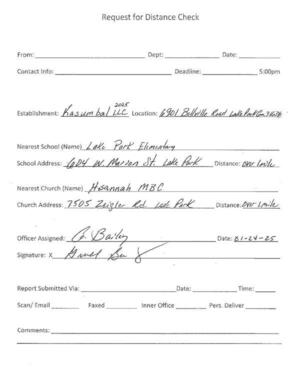 Request for Distance Check
From: Dept: Date:
Contact Info: Deadline: 5:00pm
2025
Establishment: Kasumbal LLC Location: 6901 Bellville Road Lake Park Ga
Nearest School (Name) Lake Park Elementary
School Address: 604 W. Marion St. Lake Park Distance: over 1 mile
Nearest Church (Name) Hosannah MBC
Church Address: 7505 Zeigler Rd. Lake Park Distance: over 1 mile
Officer Assigned: Bailey Date: 01-24-25
Signature: X
Report Submitted Via: Date: Time:
Scan/ Email Faxed Inner Office Pers. Deliver
Comments: